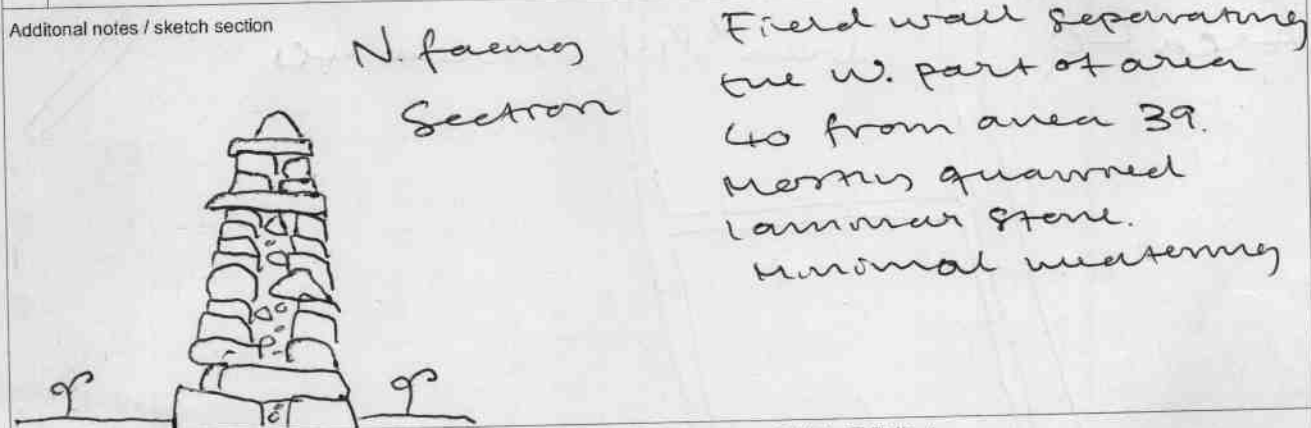 Additonal notes / sketch section
N. facing
Section
Field wall separating
the W. part of area
40 from area 39.
Mostly quarried
laminar stone.
Minimal weathering